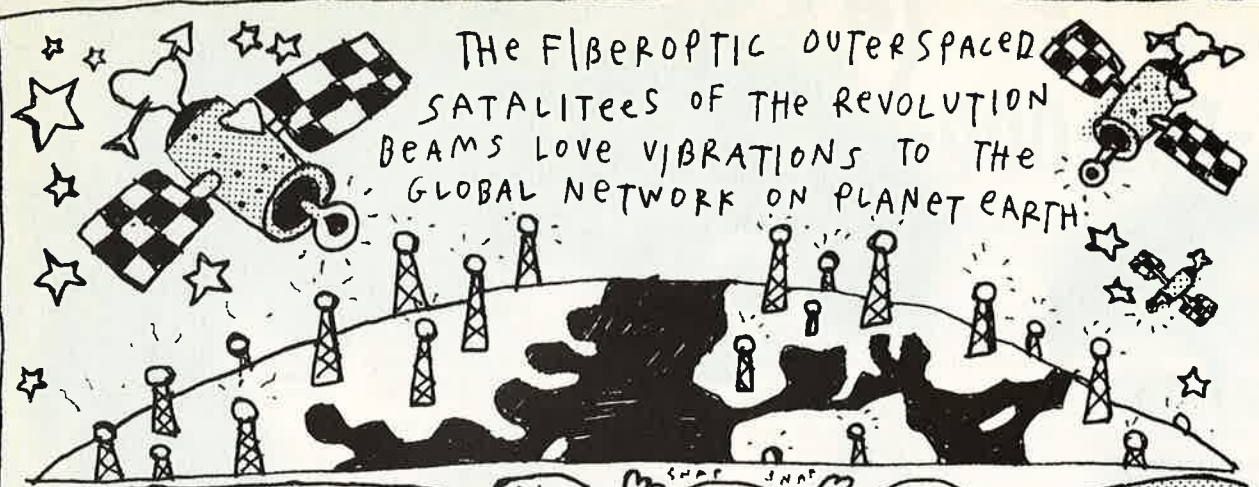 THE FIBEROPTIC OUTERSPACED
SATALITEES OF THE REVOLUTION
BEAMS LOVE VIBRATIONS TO THE
GLOBAL NETWORK ON PLANET EARTH.
SNAP SNAP